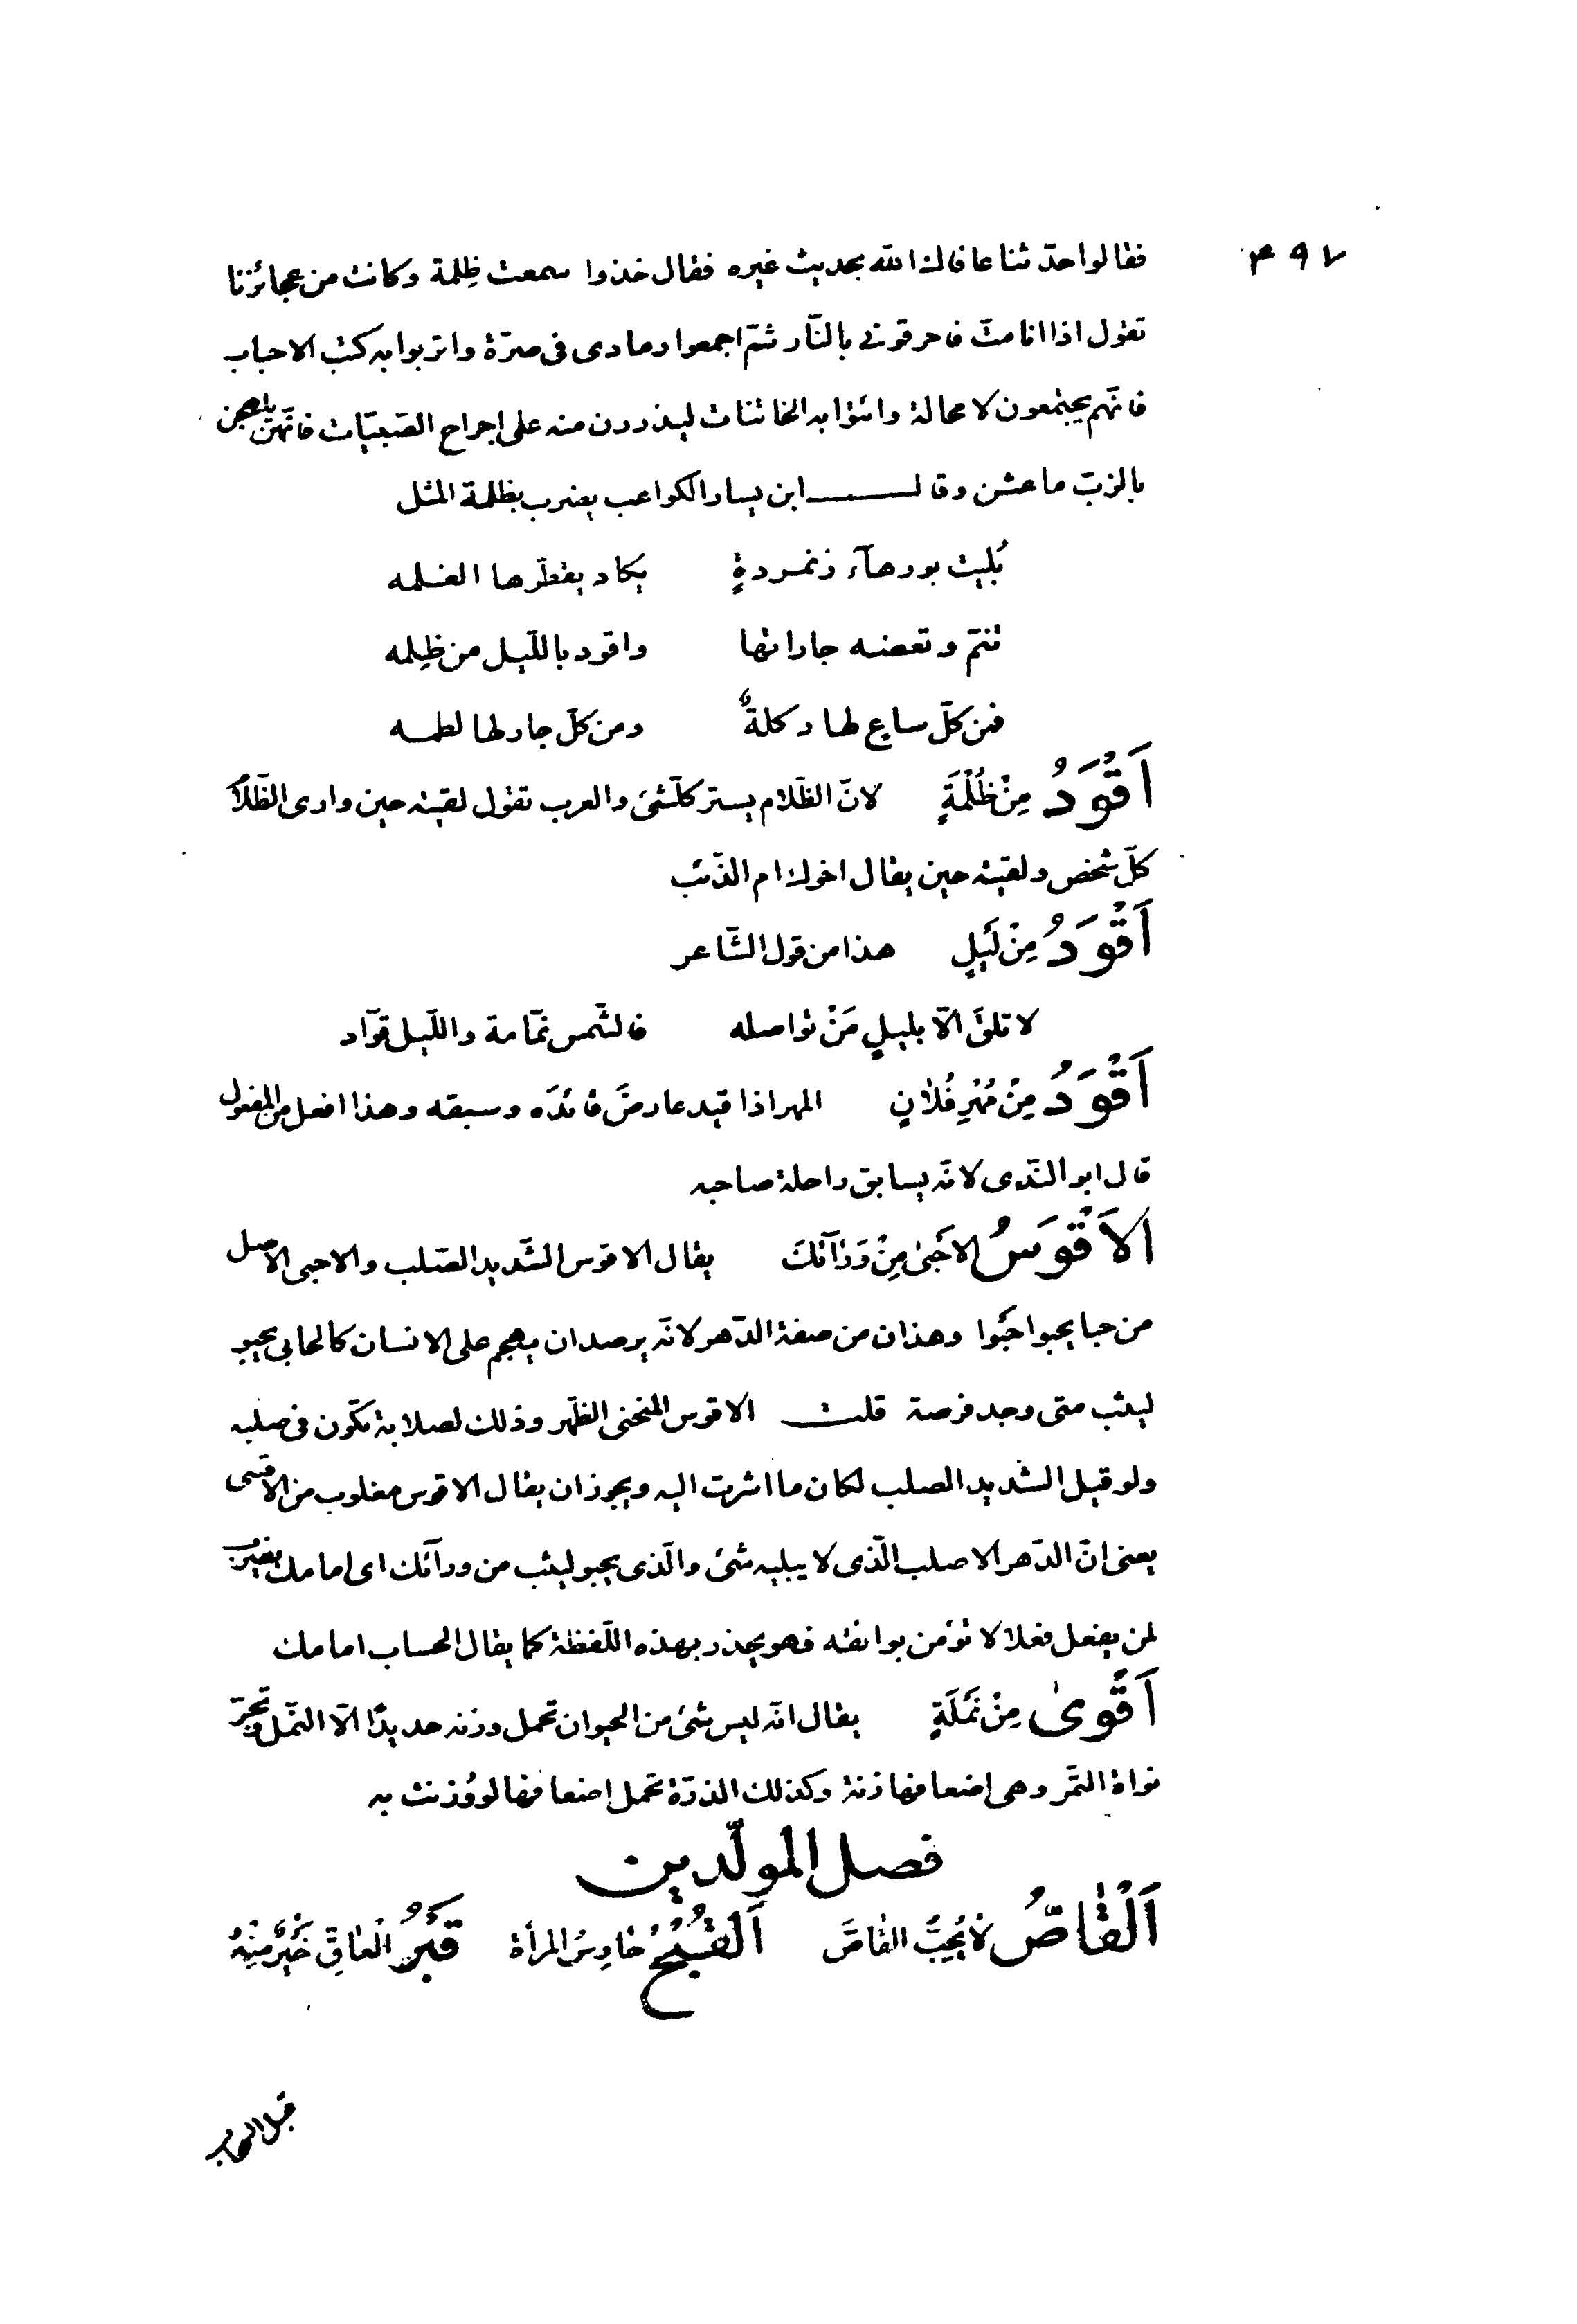 ٤٩٧
فقالوا حدّثنا عافاك الله بحديث غيره فقال خذوا سمعت ظِلمة وكانت من عجائزنا
تقول اذا انا متّ فاحرقونى بالنّار ثمّ اجمعوا رمادى فى صرّة واتربوا به كتب الاحباب
فانّهم يجتمعون لا محالة وائتوا به الخاتنات ليذررن منه على اجراح الصّبيّات فانّهنّ يلهجن
بالزبّ ما عشن وقال ابن يسار الكواعب يضرب بظلمة المثل
بُليت بورهآء زنمردةٍ يكاد يقطّرها الغلمه
تنمّ وتعضه جاراتها واقود باللّيل من ظِلمه
فمن كلّ ساعٍ لها ركلةٌ ومن كلّ جار لها لطمه
اَقْوَدُ مِنْ ظُلْمَةٍ لانّ الظّلام يستر كلّ شئ والعرب تقول لقيته حين وارى الظّلام
كلّ شخص ولقيته حين يقال اخوك ام الذّئب
اَقْوَدُ مِنْ لَيْلٍ هذا من قول الشّاعر
لا تلقَ الاّ بليلٍ مَنْ تواصله فالشّمس نمّامة واللّيل قوّاد
اَقْوَدُ مِنْ مُهْرِ فُلانٍ المهر اذا قيد عارضَ قائدَه وسبقه وهذا افعل من المفعول
قال ابو النّدى لانّه يسابق راحلة صاحبه
الاَقْوَسُ الاَحْبىٰ مِنْ وَرٰآئِكَ يقال الاقوس الشّديد الصّلب والاحبى الاصل
من حبا يحبوا حَبْوا وهذان من صفة الدّهر لانّه يرصد ان يهجم على الانسان كالحابى يحبو
ليثب متى وجد فرصة قلت الاقوس المنحنى الظّهر وذلك لصلابة تكون فى صلبه
ولو قيل الشّديد الصلب لكان ما اشرت اليه ويجوز ان يقال الاقوس مقلوب من الاقسى
يعنى انّ الدّهر الاصلب الّذى لا يبليه شئ والّذى يحبو ليثب من ورآئك اى امامك يضرب
لمن يفعل فعلا لا تؤمن بوائقه فهو يحذر بهذه اللّفظة كما يقال الحساب امامك
اَقْوىٰ مِنْ نَمْلَةٍ يقال انّه ليس شئ من الحيوان تحمل وزنه حديدًا الاّ النّمل وتجرّ
نواة التّمر وهى اضعافها زنة وكذلك الذرّة تحمل اضعافها لو وُزنت به
فصل المولّدين
اَلْقٰاصُّ لاٰ يُحِبُّ القٰاصَّ اَلْقُبْحُ حٰارِسُ المرأة قَبْرُ الْعٰاقِّ خَيْرٌ مِنْهُ
قبل السحاب